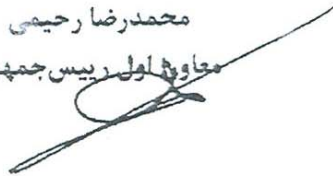 محمدرضا رحیمی
معاون اول رییس جمه